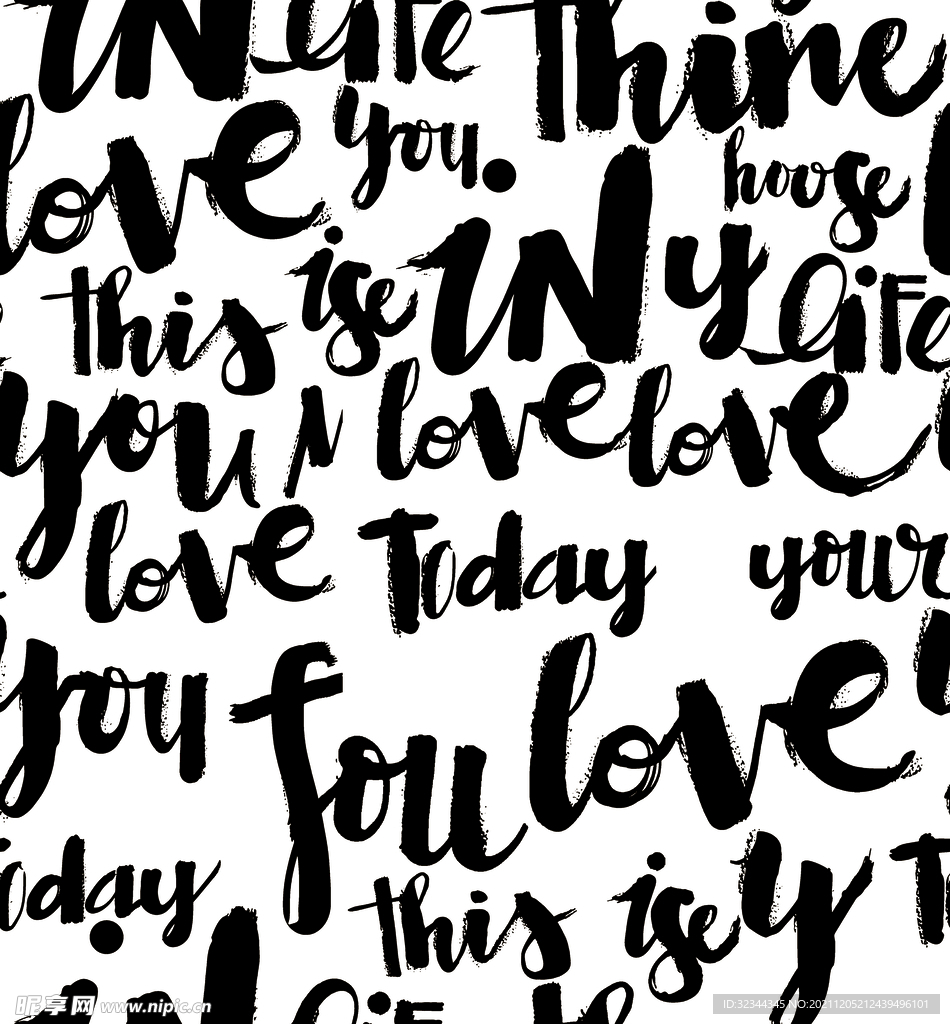 IN life Thine
love you.
hoose
this ise IN y life
you N love love
love Today your
you fou love
Today
this ise y T
昵享网 www.nipic.cn
ID:32344345 NO:20211205212439496101